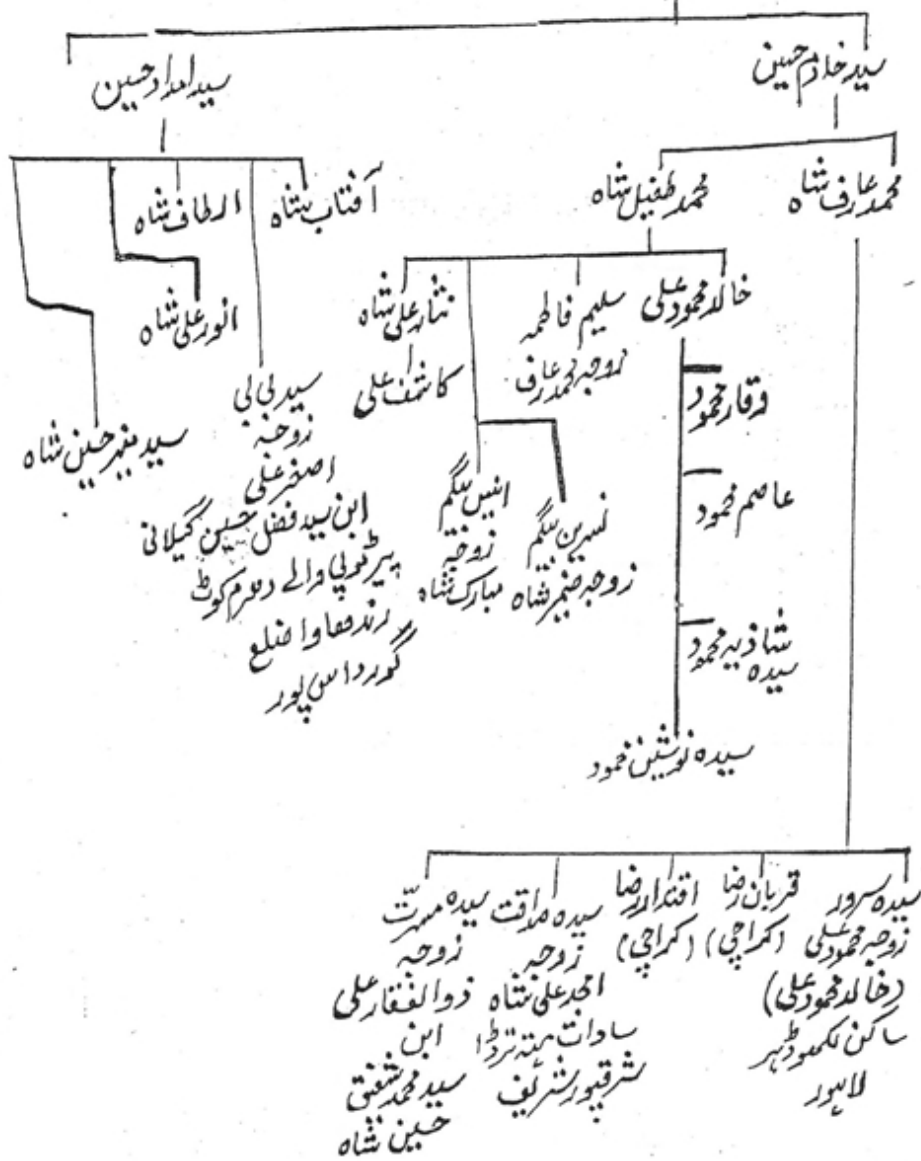 سید خادم حسین
سید امداد حسین
محمد عارف شاہ
محمد طفیل شاہ
آفتاب شاہ
الطاف شاہ
انور علی شاہ
سید بی بی
زوجہ
اصغر علی
ابن سید فضل حسین گیلانی
پیر ٹوپی والے دھرم کوٹ
رندھاوا ضلع
گورداس پور
سید حسین شاہ
خالد محمود علی
سلیم فاطمہ
زوجہ محمد عارف
نثار علی شاہ
کاشف علی
نسرین بیگم
زوجہ ضمیر شاہ
انیس بیگم
زوجہ
مبارک شاہ
وقار محمود
عاصم محمود
شاذیہ محمود
سیدہ
سیدہ نوشین محمود
سیدہ سرور
زوجہ محمود علی
(خالد محمود علی)
ساکن لکھوڈیر
لاہور
قربان رضا
(کراچی)
اقتدار رضا
(کراچی)
سیدہ صداقت
زوجہ
امجد علی شاہ
سادات
شرقپور شریف
سیدہ مسرت
زوجہ
ذوالفقار علی
ابن
سید محمد شفیق
حسین شاہ